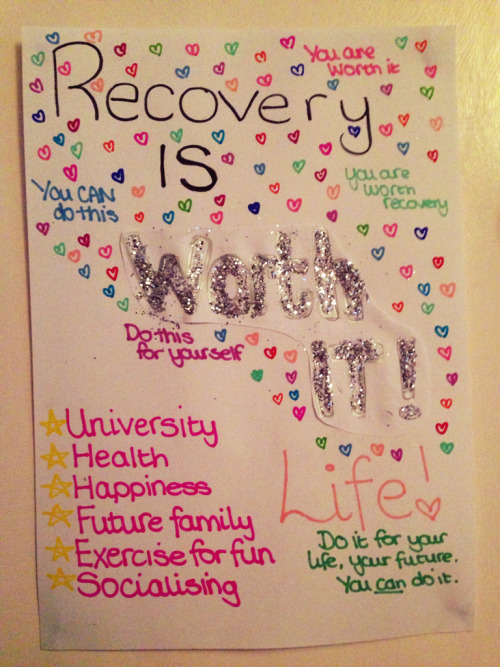 You are
worth it
Recovery
IS
You are
worth
recovery
You CAN
do this
Worth
IT!
Do this
for yourself
University
Health
Happiness
Future family
Exercise for fun
Socialising
Life!
Do it for your
life, your future.
You can do it.